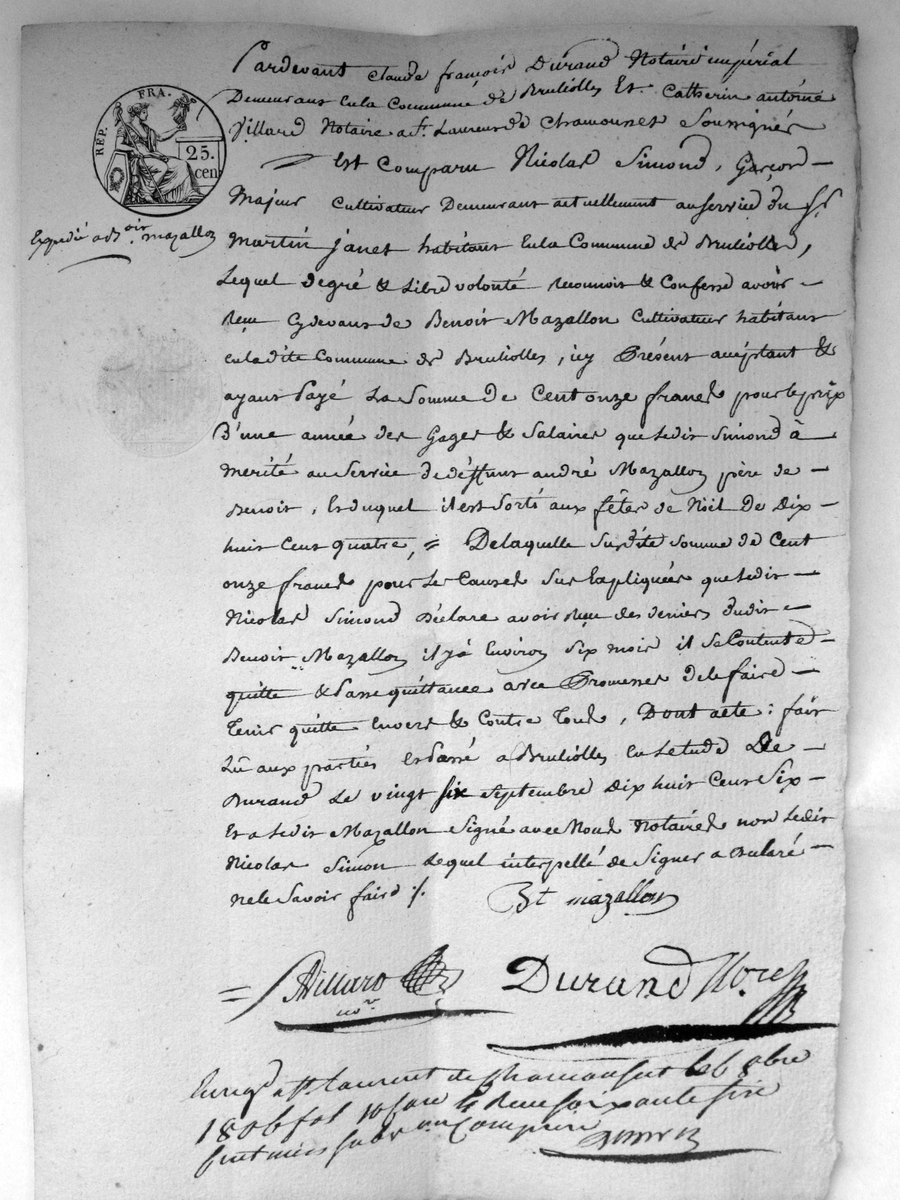 REP. FRA.
25.
cen
Expédié a Bt mazallon
Pardevant Claude françois Durand Notaire impérial
Demeurant En la Commune de Brullolles Et Catherin antoine
Villard Notaire a St Laurent de Chamousset Soussignés
= Est Comparu Nicolas Simond, Garçon
Majeur Cultivateur Demeurant actuellement au Service du Sr
Martin janet habitant En la Commune de Brullolles,
Lequel de gré & Libre volonté reconnoit & Confesse avoir
reçu Cydevant de Benoit Mazallon Cultivateur habitant
en la dite Commune de Brullolles, icy Présent acceptant &
ayant Payé La Somme de Cent onze francs pour le prix
D'une année des Gages & Salaires que ledit Simond à
merité au Service de deffunt andré Mazallon père de
Benoit, Et duquel il est Sorti aux fêtes de Noël de Dix
huit Cent quatre, = De laquelle Surdite Somme de Cent
onze francs pour les Causes Sus Expliquées que ledit
Nicolas Simond Déclare avoir reçu des deniers dudit
Benoit Mazallon il y à Environ Six mois il se Contente
quitte & Passe quittance avec Promesse de le faire
Tenir quitte Envers & Contre Tous, Dont acte: fait
Lû aux parties et Passé a Brullolles En Letude De
Durand Le vingt six Septembre Dix huit Cent Six
Et a Ledit Mazallon Signé avec Nous Notaires non Ledit
Nicolas Simon Lequel interpellé de Signer a Déclaré
ne le Savoir faire ./.
Bt mazallon
= AVillard nore
Durand Nore
Enregé a St Laurent de Chamousset le 6 8bre
1806 fol 10 Reçu Soixante Six
Centimes Subvon Comprise